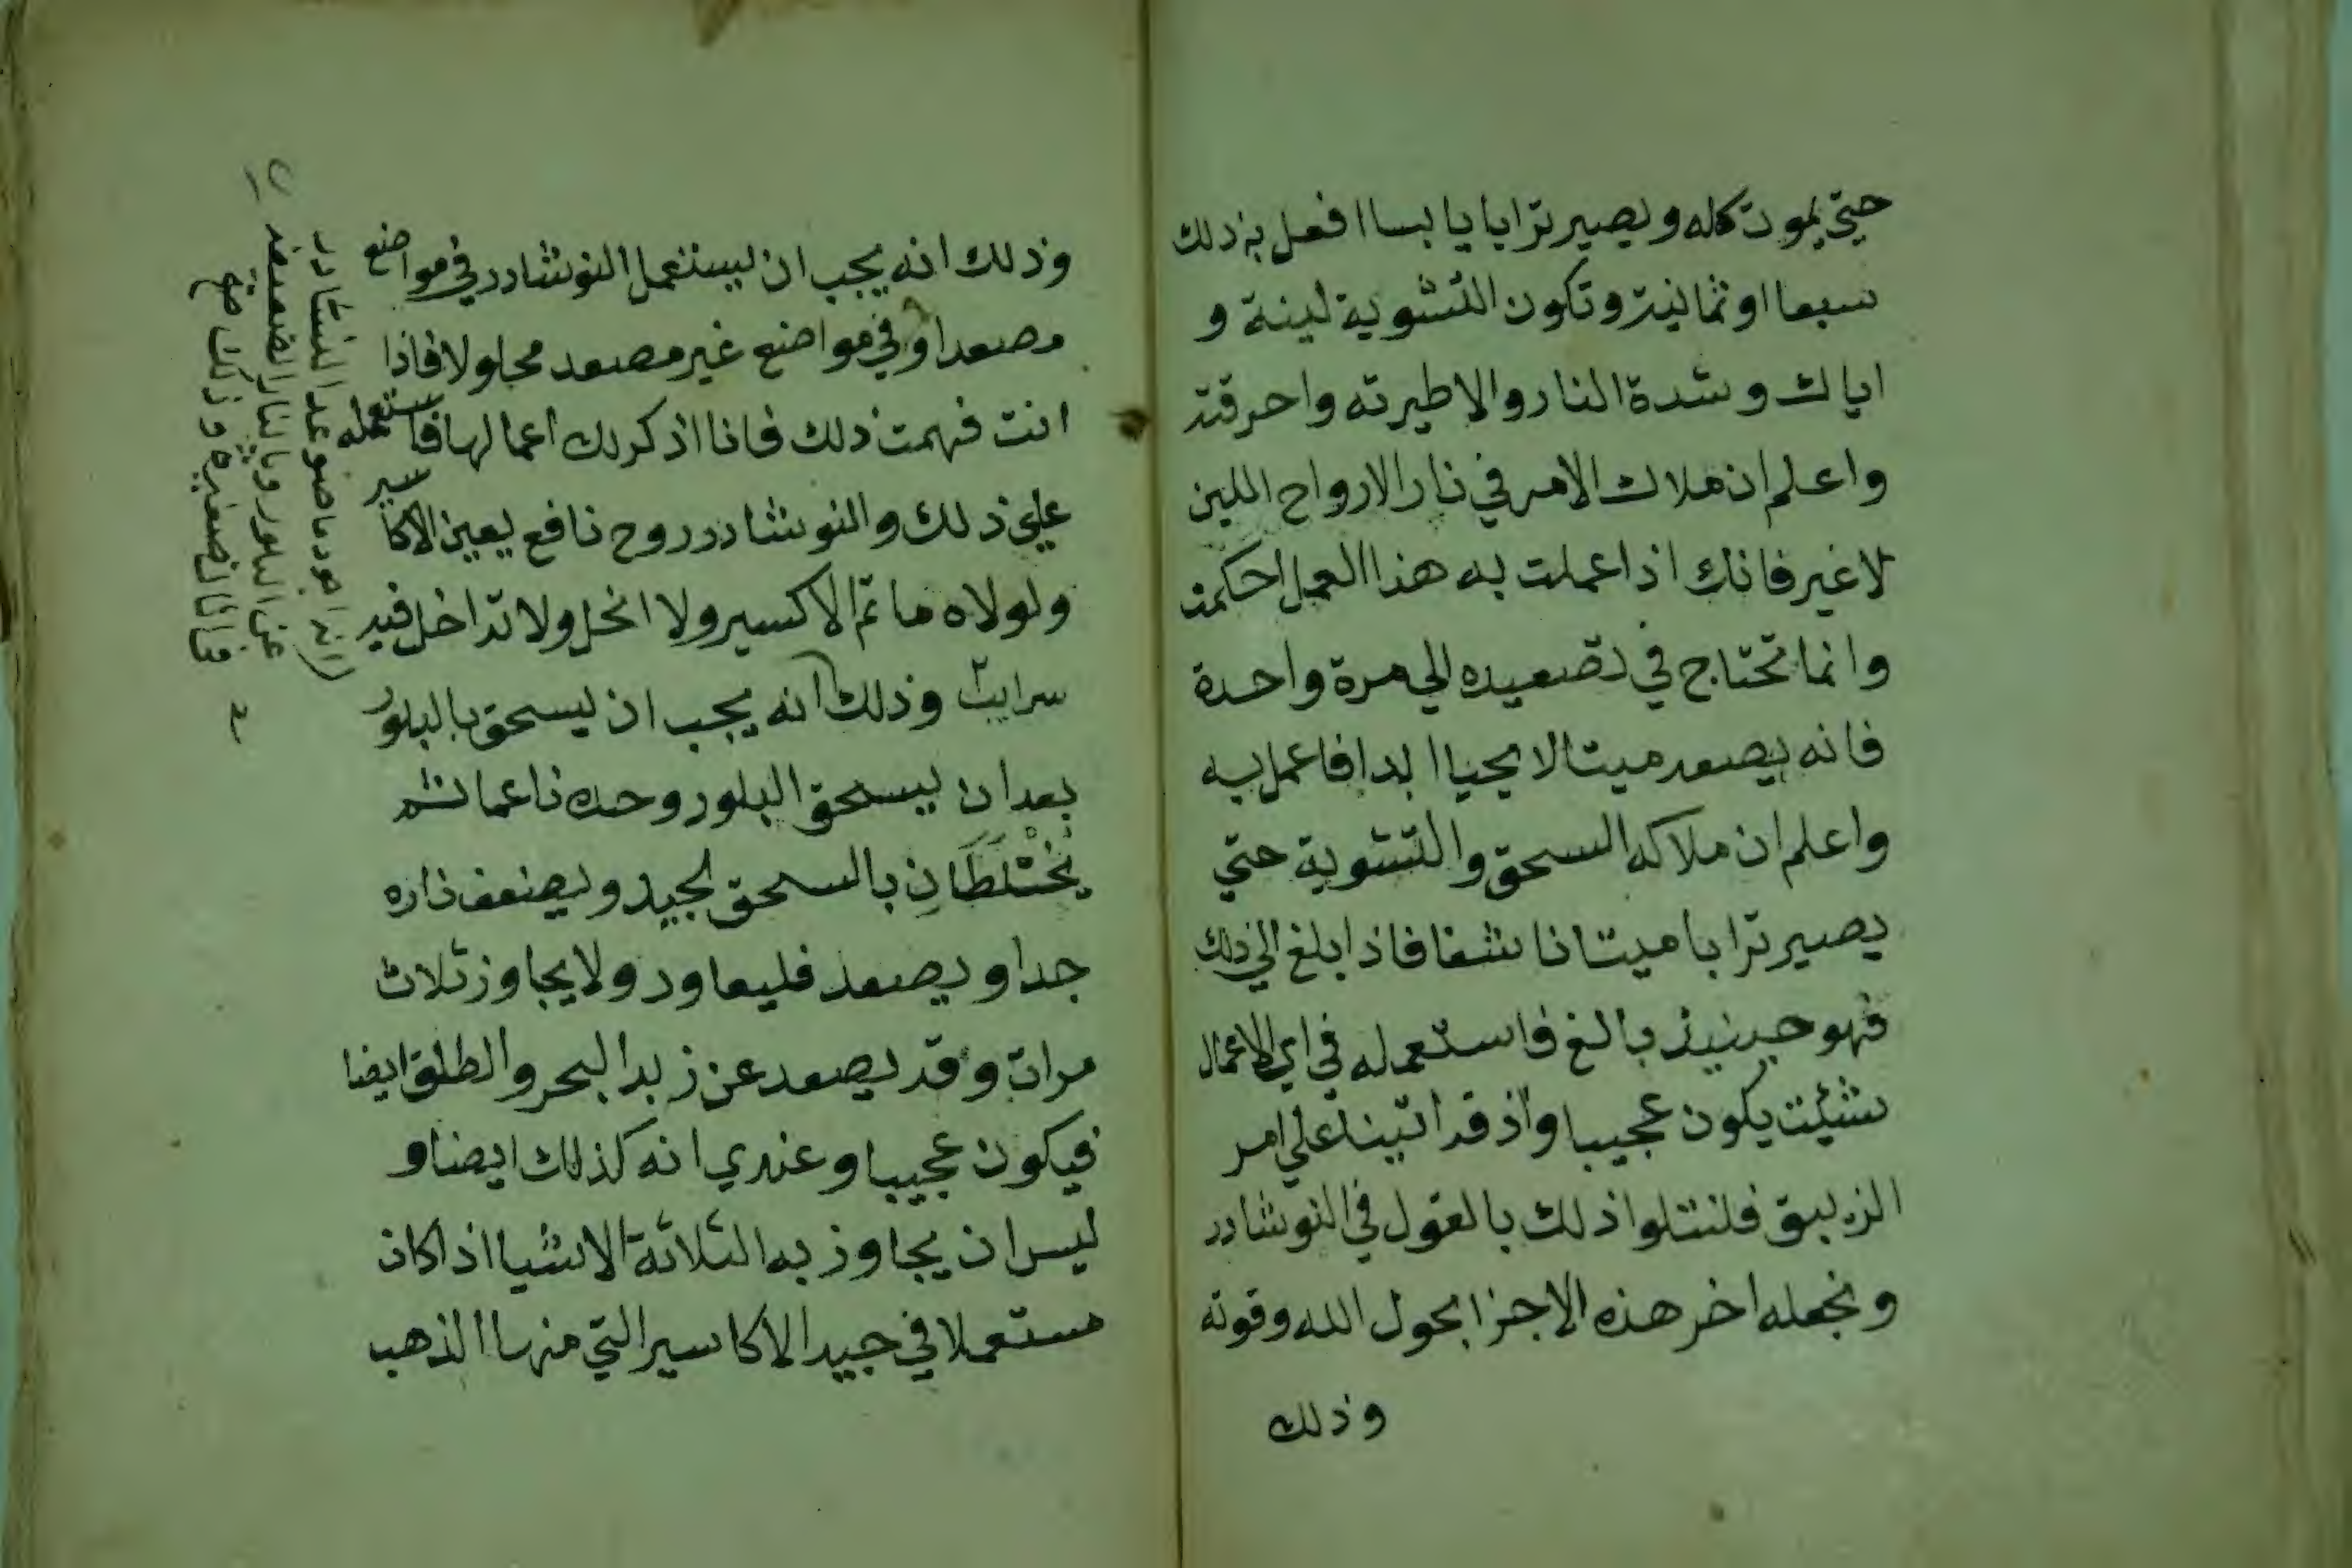 حتي يموت كله و يصير ترابا يابسا افعل به ذلك
سبعا او ثمانية و تكون التشوية لينة و
اياك و شدة النار والا طيرته واحرقته
واعلم ان ملاك الامر في نار الارواح اللين
لا غير فانك اذا عملت به هذا العمل احكمته
وانما تحتاج في تصعيده الي مرة واحدة
فانه يصعد ميتا لا يحيا ابدا فاعمل به
واعلم ان ملاكه السحق والتشوية حتي
يصير ترابا ميتا ناشفا فاذا بلغ الي ذلك
فهو حينيذ بالغ فاستعمله في اي الاعمال
شئت يكون عجيبا واذ قد اتينا علي امر
الزيبق فلنتلوا ذلك بالقول في النوشادر
ونجعله اخر هذه الاجزا بحول الله وقوته
وذلك
وذلك انه يجب ان يستعمل النوشادر في مواضع
مصعدا وفي مواضع غير مصعد محلولا فاذا
انت فهمت ذلك فانا اذكر لك اعمالها فاستعمله
علي ذلك والنوشادر روح نافع يعين الاكاسير
ولولاه ما تم الاكسير ولا انحل ولا تداخل فيه
سرايت وذلك انه يجب ان يسحق بالبلور
بعد ان يسحق البلور وحده ناعما ثم
يَخْتَلَطَانِ بالسحق الجيد و يضعف ناره
جدا و يصعد فليعاود ولا يجاوز ثلاث
مرات وقد يصعد عن زبد البحر والطلق ايضا
فيكون عجيبا وعندي انه كذلك ايضا و
ليس ان يجاوز به الثلاثة الاشيا اذا كان
مستعملا في جيد الاكاسير التي منها الذهب
انه اجود ما صوعد النشادر
عن البلور وبالنار الضعيفه
فانا الصغيره وذلك صح